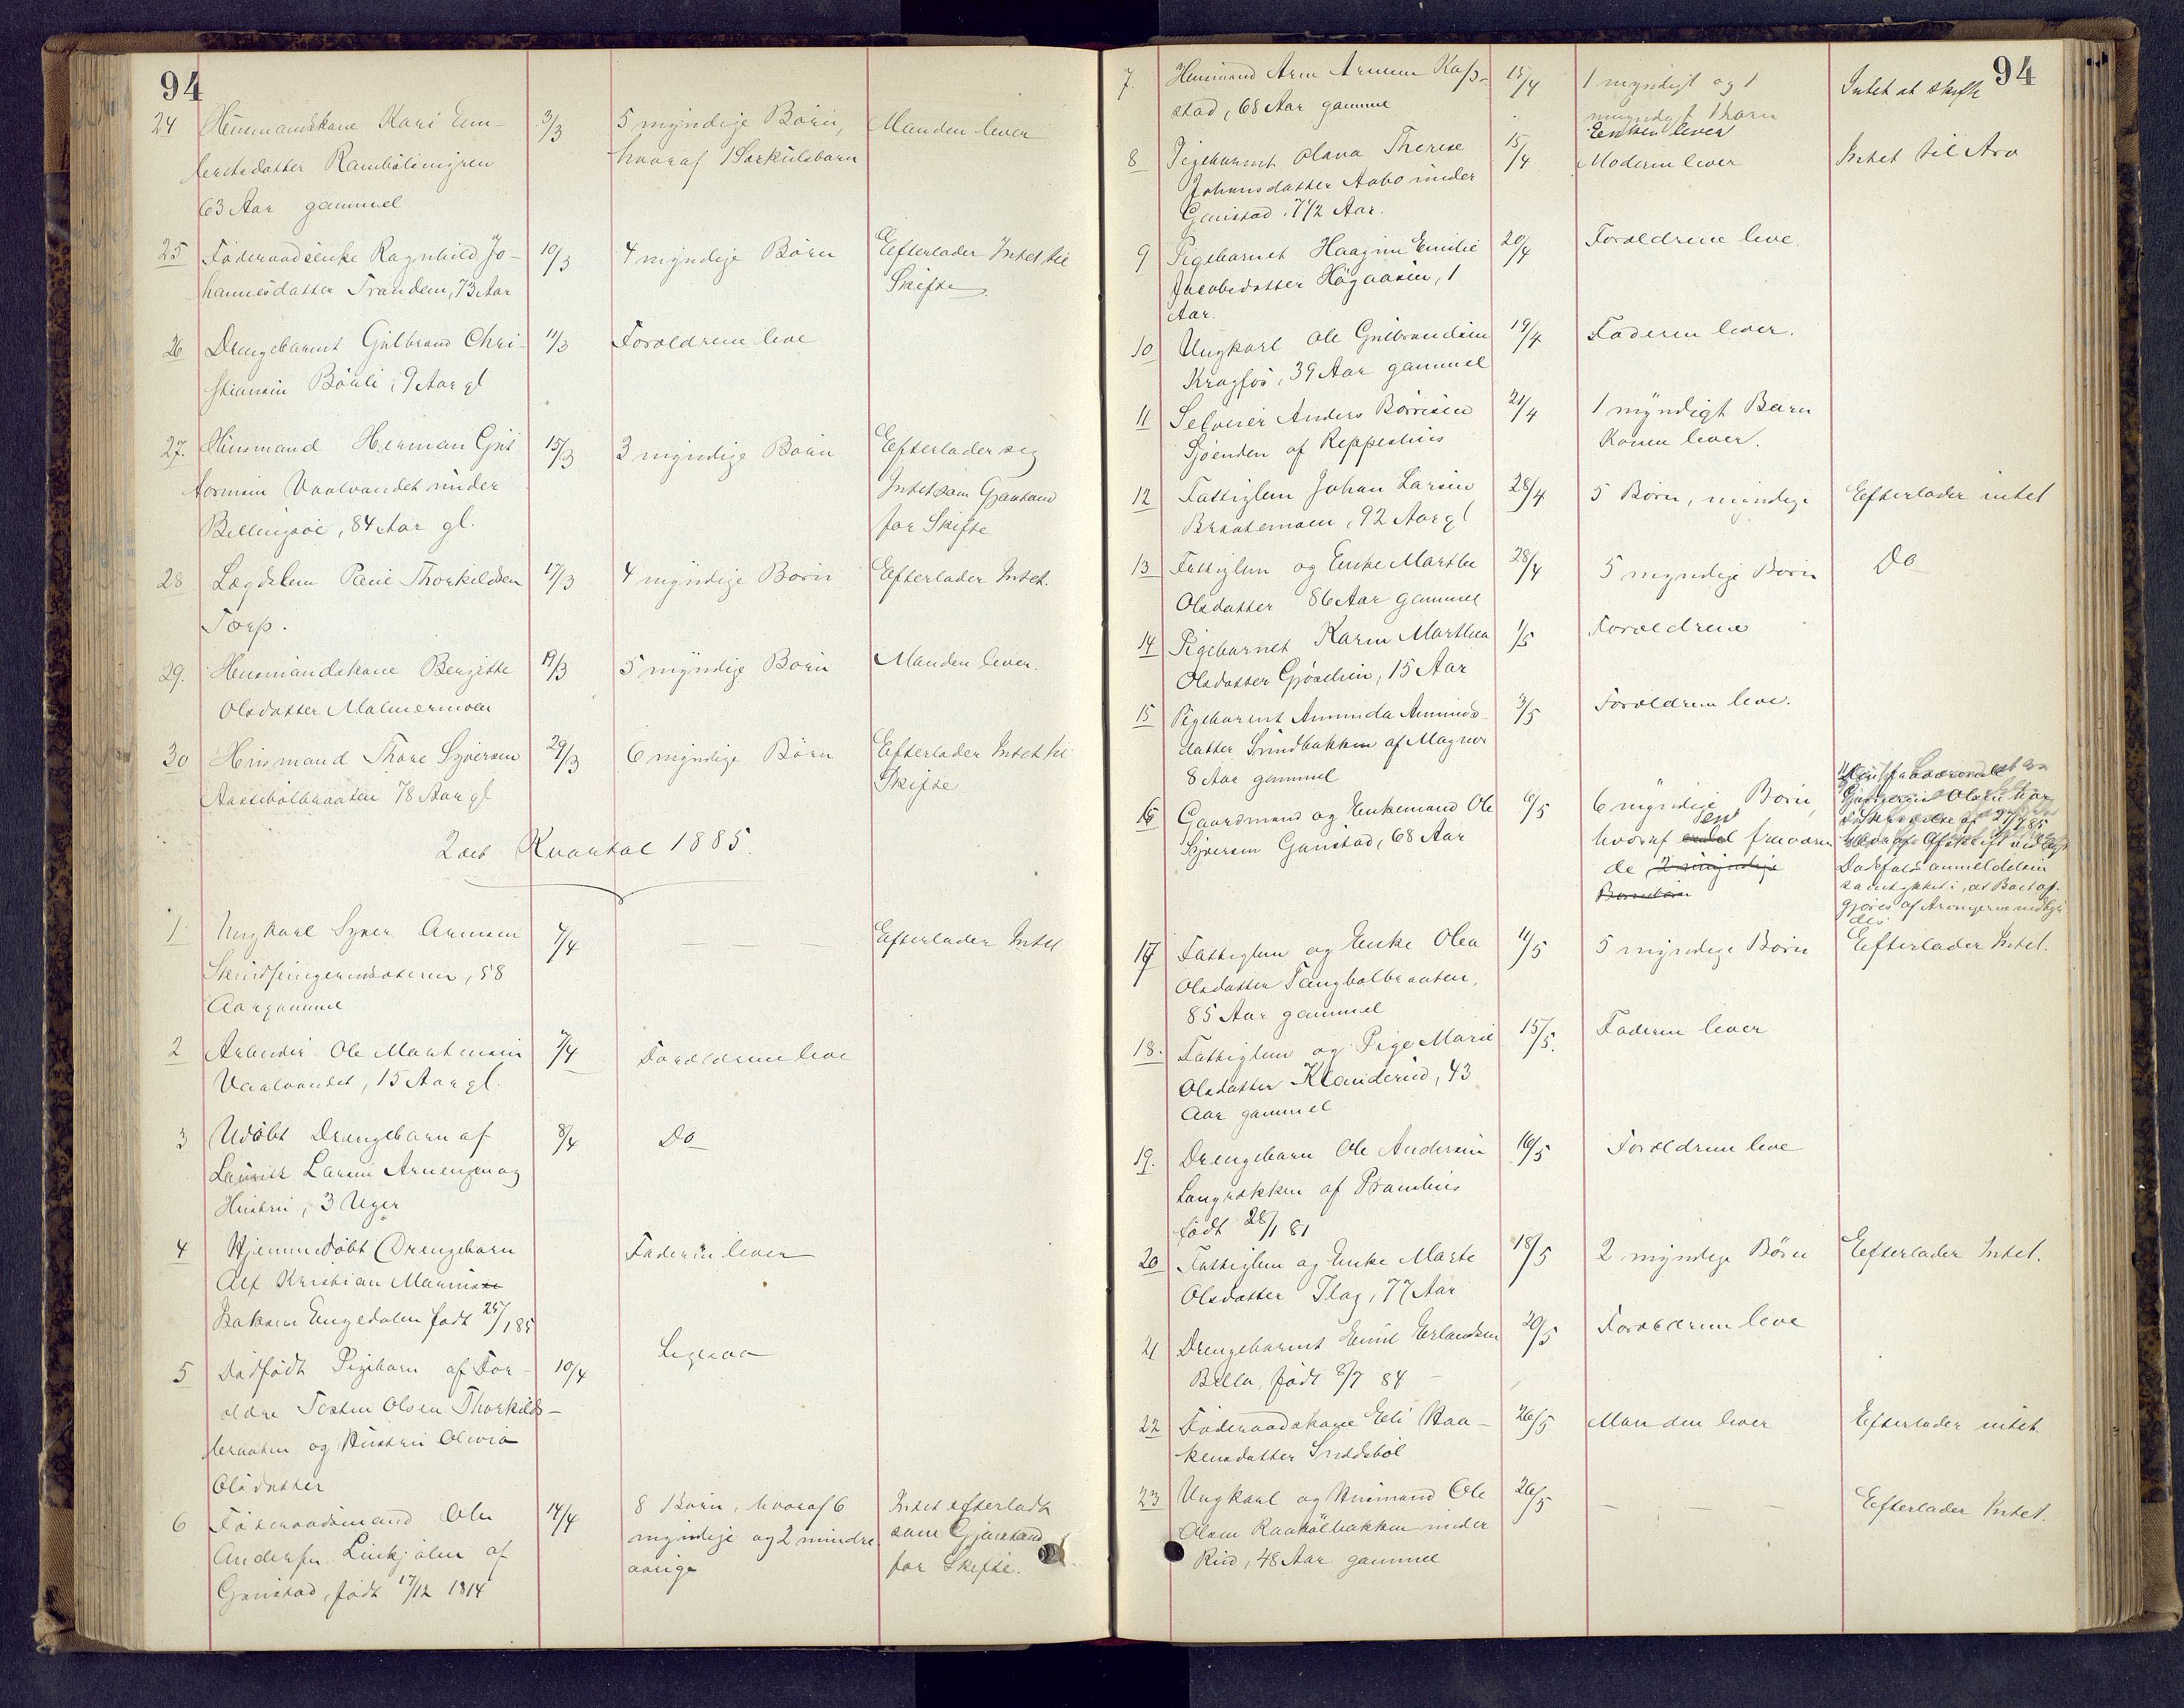 94
24 Husmandskone Kari Em- 3/3 5 myndige Börn, Manden lever
bretsdatter hvoraf 1 Særkulsbarn
63 Aar gammel
25 Föderaadsenke Ragnhild Jo- 10/3 4 myndige Börn Efterlader Intet til
hannesdatter Trandem, 73 Aar Skifte
26 Drengebarnet Gulbrand Chri- 11/3 Forældrene leve
stiansen Böhli, 9 Aar gl
27. Husmand Herman Gut- 15/3 3 myndige Börn Efterlader sig
tormsen Vaalvandet under Intet som Gjenstand
84 Aar gl. for Skifte
28 Lægdslem Paul Thorkildsen 17/3 4 myndige Börn Efterlader Intet.
Torp.
29. Husmandskone Bergitte 19/3 5 myndige Börn Manden lever.
Olsdatter Malmermoen
30 Husmand Thore Syversen 29/3 6 myndige Börn Efterlader Intet til
78 Aar gl Skifte
2det Kvartal 1885.
1 Ungkarl Syver Arnesen 7/4 — — — Efterlader Intet
58
Aar gammel
2 Arbeider Ole Martinsen 7/4 Forældrene leve
Vaalvandet, 15 Aar gl.
3 Udöbt Drengebarn af 8/4 Do
Lauritz Larsen Arnengen og
Hustru, 3 Uger
4 Hjemmedöbt Drengebarn Faderen lever
Alf Kristian
Engedalen födt 25/1 85
5 Dödfödt Pigebarn af For- 10/4 Ligesaa
ældre Torsten Olsen Thorkilds-
braaten og Hustru Olivia
Olsdatter
6 Föderaadsmand Ole 14/4 8 Börn, hvoraf 6 Intet efterladt
Andersen af myndige og 2 mindre som Gjenstand
Gunstad, födt 17/12 1814 aarige for Skifte.
94
7. Husmand Arne Arnesen Kaps- 15/4 1 myndigt og 1 Intet at skifte
stad, 68 Aar gammel umyndigt Barn
Enken lever
8 Pigebarnet Olava Therese 15/4 Moderen lever Intet til Arv
Johansdatter Aabo under
Gunstad, 7 1/2 Aar.
9 Pigebarnet Haagine Emilie 20/4 Forældrene leve.
Jacobsdatter Högaasen, 1
Aar.
10 Ungkarl Ole Gulbrandsen 19/4 Faderen lever.
Kragfos, 39 Aar gammel
11 Selveier Anders Börresen 21/4 1 myndigt Barn
Sjøenden af Reppeshus Konen lever.
12 Fattiglem Johan Larsen 28/4 5 Börn, myndige Efterlader intet
Braatemoen, 92 Aar gl
13 Fattiglem og Enke Marthe 28/4 5 myndige Börn Do
Olsdatter 86 Aar gammel
14 Pigebarnet Karen Marthea 1/5 Forældrene
Olsdatter 15 Aar
15 Pigebarnet Amunda Amunds- 3/5 Forældrene leve.
datter af Magnor
8 Aar gammel
16 Gaardmand og Enkemand Ole 6/5 6 myndige Börn,
Syversen Gunstad, 68 Aar hvoraf en fraværen
de 2 myndige
Olsen har
27/7 85
Dödsfaldsanmeldelsen
samtykket i, at Boet op-
gjöres af Arvingerne
17 Fattiglem og Enke Olea 11/5 5 myndige Börn Efterlader Intet.
Olsdatter Tangbölbraaten,
85 Aar gammel
18. Fattiglem og Pige Marie 15/5. Faderen lever
Olsdatter Klanderud, 43
Aar gammel
19. Drengebarn Ole Andersen 16/5 Forældrene leve
Langbakken af Pramhus
födt 28/1 81
20 Fattiglem og Enke Marte 18/5 2 myndige Börn Efterlader Intet.
Olsdatter Flag, 77 Aar
21 Drengebarnet Emil Erlandsen 20/5 Forældrene leve
födt 8/7 84
22 Föderaadskone Eli Haa- 26/5 Manden lever Efterlader intet.
kensdatter
23 Ungkarl og Husmand Ole 26/5 — — — Efterlader Intet.
Olsen under
Rud, 48 Aar gammel